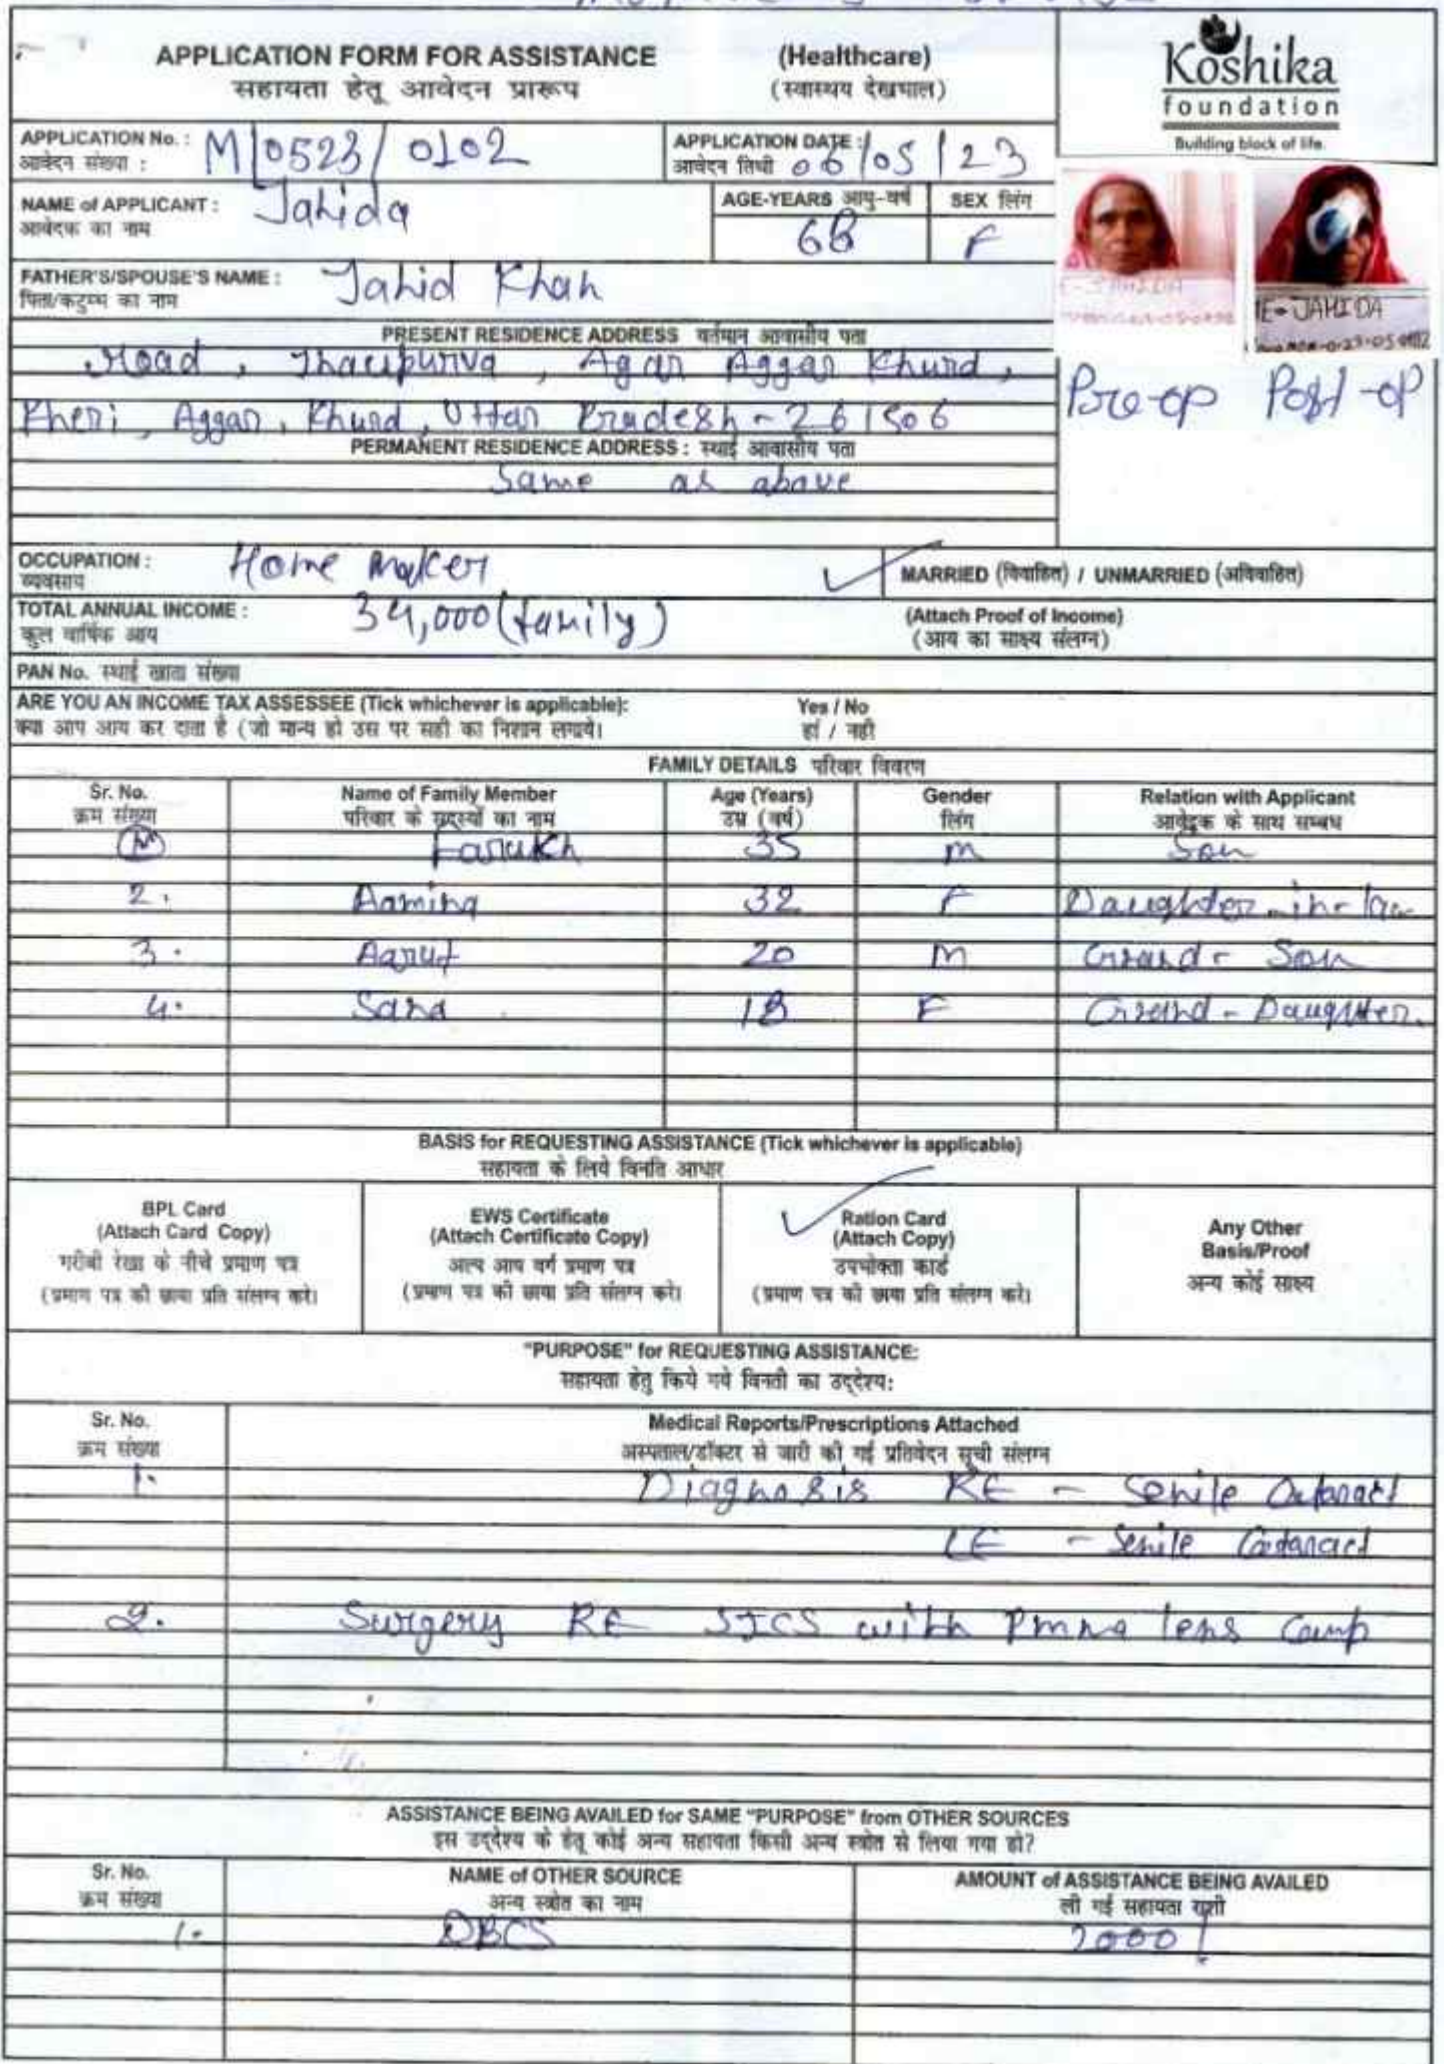 APPLICATION FORM FOR ASSISTANCE (Healthcare)
सहायता हेतू आवेदन प्रारूप (स्वास्थय देखभाल)
Koshika
foundation
Building block of life.
APPLICATION No. : M/0523/0102 APPLICATION DATE : 06/05/23
आवेदन संख्या : आवेदन तिथी
NAME of APPLICANT : Jahida AGE-YEARS आयु-वर्ष SEX लिंग
आवेदक का नाम 68 F
FATHER'S/SPOUSE'S NAME : Jahid Khan
पिता/कटुम्ब का नाम
E-JAHIDA
ME-JAHIDA
Pre-op Post-op
PRESENT RESIDENCE ADDRESS वर्तमान आवासीय पता
Road, Agar Aggar Khurd,
Kheri, Aggar, Khurd, Uttar Pradesh-261506
PERMANENT RESIDENCE ADDRESS : स्थाई आवासीय पता
Same as above
OCCUPATION : Home Maker MARRIED (विवाहित) / UNMARRIED (अविवाहित)
व्यवसाय
TOTAL ANNUAL INCOME : 34,000 (family) (Attach Proof of Income)
कुल वार्षिक आय (आय का साक्ष्य संलग्न)
PAN No. स्थाई खाता संख्या
ARE YOU AN INCOME TAX ASSESSEE (Tick whichever is applicable): Yes / No
क्या आप आय कर दाता है (जो मान्य हो उस पर सही का निशान लगाये। हां / नही
FAMILY DETAILS परिवार विवरण
Sr. No. Name of Family Member Age (Years) Gender Relation with Applicant
क्रम संख्या परिवार के सदस्यों का नाम उम्र (वर्ष) लिंग आवेदक के साथ सम्बध
Farukh 35 M Son
2. Aamina 32 F Daughter-in-law
3. 20 M Grand-Son
4. Sara 18 F Grand-Daughter
BASIS for REQUESTING ASSISTANCE (Tick whichever is applicable)
सहायता के लिये विनति आधार
BPL Card
(Attach Card Copy)
गरीबी रेखा के नीचे प्रमाण पत्र
(प्रमाण पत्र की छाया प्रति संलग्न करे।
EWS Certificate
(Attach Certificate Copy)
अल्प आय वर्ग प्रमाण पत्र
(प्रमाण पत्र की छाया प्रति संलग्न करे।
Ration Card
(Attach Copy)
उपभोक्ता कार्ड
(प्रमाण पत्र की छाया प्रति संलग्न करे।
Any Other
Basis/Proof
अन्य कोई साक्ष्य
"PURPOSE" for REQUESTING ASSISTANCE:
सहायता हेतु किये गये विनती का उद्देश्य:
Sr. No. Medical Reports/Prescriptions Attached
क्रम संख्या अस्पताल/डॉक्टर से जारी की गई प्रतिवेदन सूची संलग्न
1. Diagnosis RE - Senile Cataract
LE - Senile Cataract
2. Surgery RE SICS with Pmma lens Camp
ASSISTANCE BEING AVAILED for SAME "PURPOSE" from OTHER SOURCES
इस उद्देश्य के हेतू कोई अन्य सहायता किसी अन्य स्त्रोत से लिया गया हो?
Sr. No. NAME of OTHER SOURCE AMOUNT of ASSISTANCE BEING AVAILED
क्रम संख्या अन्य स्त्रोत का नाम ली गई सहायता राशी
1. DBCS 2000/